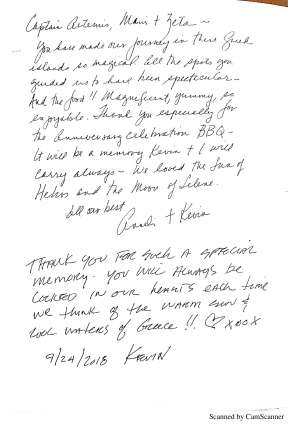 Captain Artemis, Maria + Zeta ~
You have made our journey in these Greek
islands so magical. All the spots you
guided us to have been spectacular -
And the food!! Magnificent, yummy, so
enjoyable. Thank you especially for
the Anniversary celebration BBQ -
It will be a memory Kevin + I will
carry always - We loved the Sun of
Helios and the Moon of Selene.
All our best
+ Kevin
THANK YOU FOR SUCH A SPECIAL
MEMORY. YOU WILL ALWAYS BE
LOCKED IN OUR HEARTS EACH TIME
WE THINK OF THE WARM SUN &
COOL WATERS OF GREECE!! ♡ XOOX
9/24/2018 KEVIN
Scanned by CamScanner